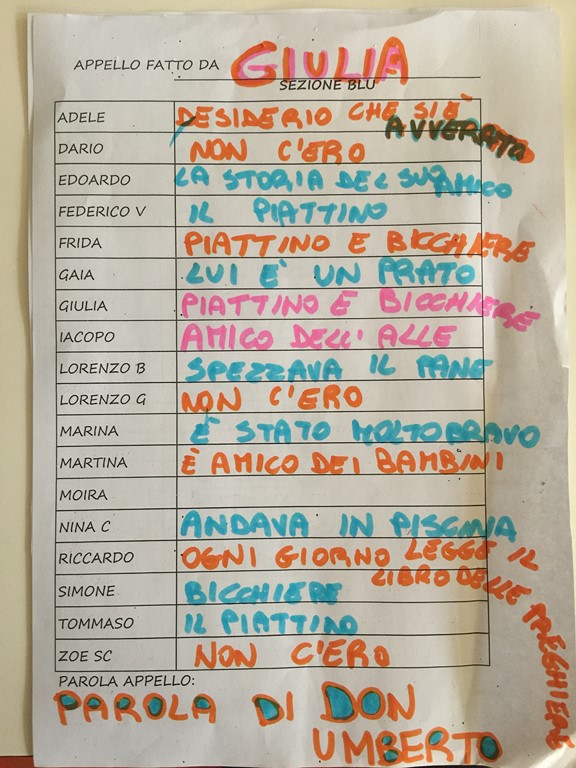 APPELLO FATTO DA GIULIA
SEZIONE BLU
ADELE DESIDERIO CHE SI È AVVERATO
DARIO NON C'ERO
EDOARDO LA STORIA DEL SUO AMICO
FEDERICO V IL PIATTINO
FRIDA PIATTINO E BICCHIERE
GAIA LUI E' UN PRATO
GIULIA PIATTINO E BICCHIERE
IACOPO AMICO DELL' ALLE
LORENZO B SPEZZAVA IL PANE
LORENZO G NON C'ERO
MARINA È STATO MOLTO BRAVO
MARTINA È AMICO DEI BAMBINI
MOIRA
NINA C ANDAVA IN PISCINA
RICCARDO OGNI GIORNO LEGGE IL LIBRO DELLE PREGHIERE
SIMONE BICCHIERE
TOMMASO IL PIATTINO
ZOE SC NON C'ERO
PAROLA APPELLO:
PAROLA DI DON
UMBERTO